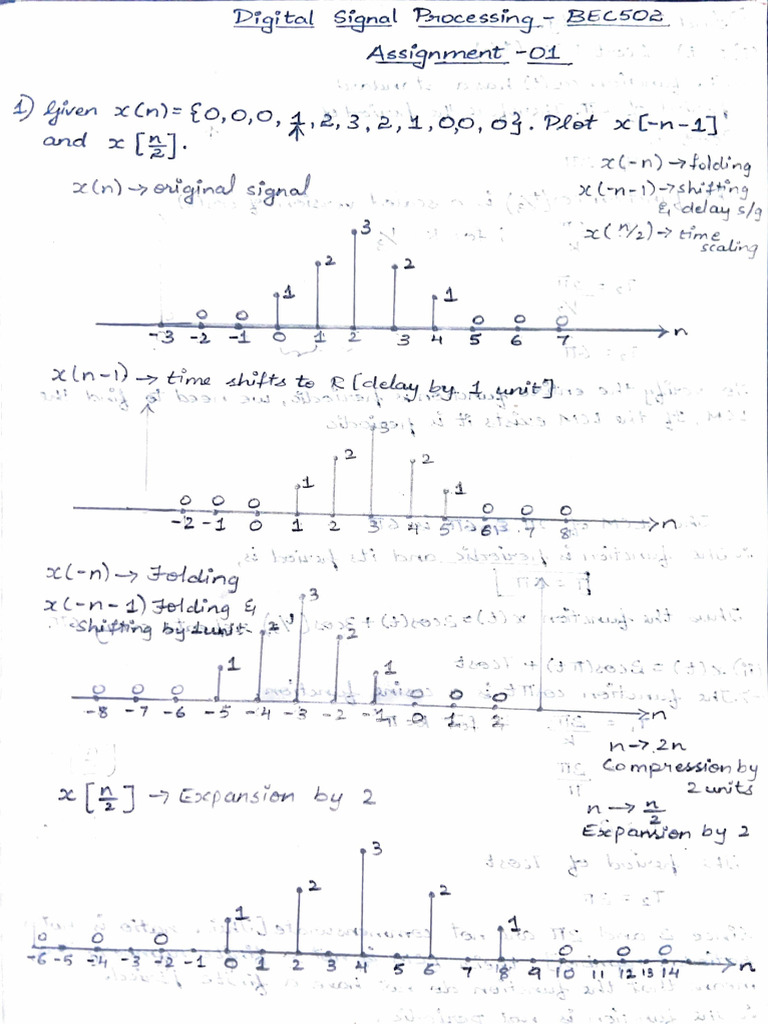 Digital Signal Processing - BEC502
Assignment -01
1) Given x(n) = {0,0,0, 1, 2, 3, 2, 1, 0,0, 0}. Plot x[-n-1]
↑
and x[n/2].
x(-n) → folding
x(n) → original signal
x(-n-1) → shifting
& delay s/g
x(n/2) → time
scaling
0 0 1 2 3 2 1 0 0 0
-3 -2 -1 0 1 2 3 4 5 6 7 → n
x(n-1) → time shifts to R [delay by 1 unit]
0 0 0 1 2 3 2 1 0 0 0
-2 -1 0 1 2 3 4 5 6 7 8 → n
x(-n) → Folding
x(-n-1) Folding &
Shifting by 1 unit
0 0 0 1 2 3 2 1 0 0 0
-8 -7 -6 -5 -4 -3 -2 -1 0 1 2 → n
n → 2n
Compression by
2 units
x[n/2] → Expansion by 2
n → n/2
Expansion by 2
0 0 0 1 2 3 2 1 0 0 0
-6 -5 -4 -3 -2 -1 0 1 2 3 4 5 6 7 8 9 10 11 12 13 14 → n